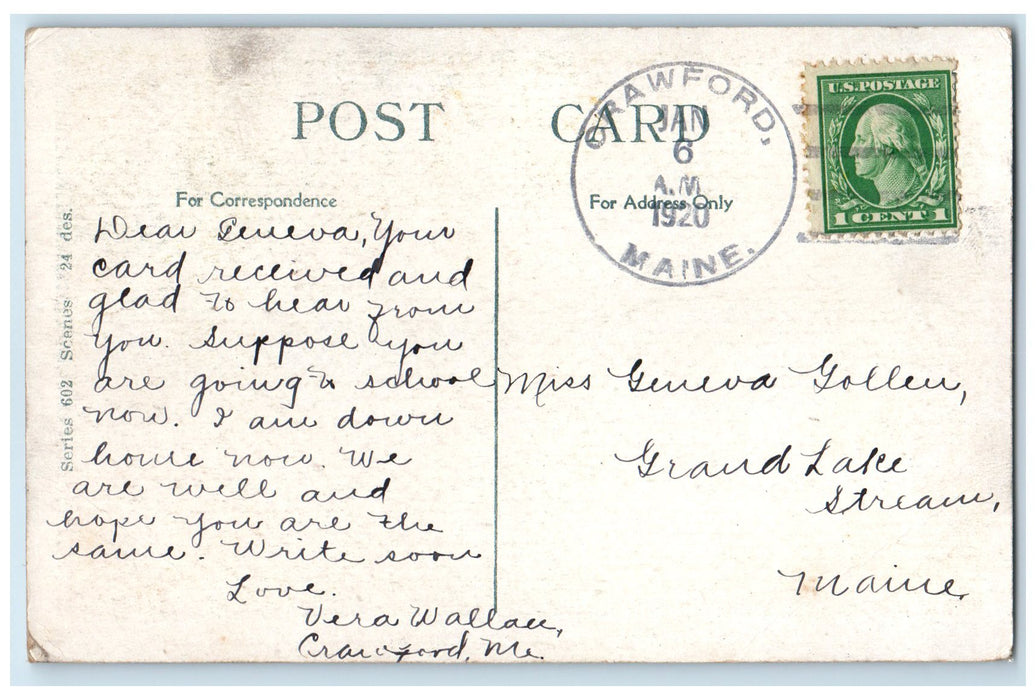 POST CARD
CRAWFORD,
JAN
6
A.M.
1920
MAINE.
U.S. POSTAGE
1 CENT 1
For Correspondence
For Address Only
Series 602 Scenes 24 des.
Dear Geneva, Your
card received and
glad to hear from
you. Suppose you
are going to school
now. I am down
home now. We
are well and
hope you are the
same. Write soon
Love.
Vera Wallace,
Crawford, Me.
Miss Geneva Gollen,
Grand Lake
Stream,
Maine.